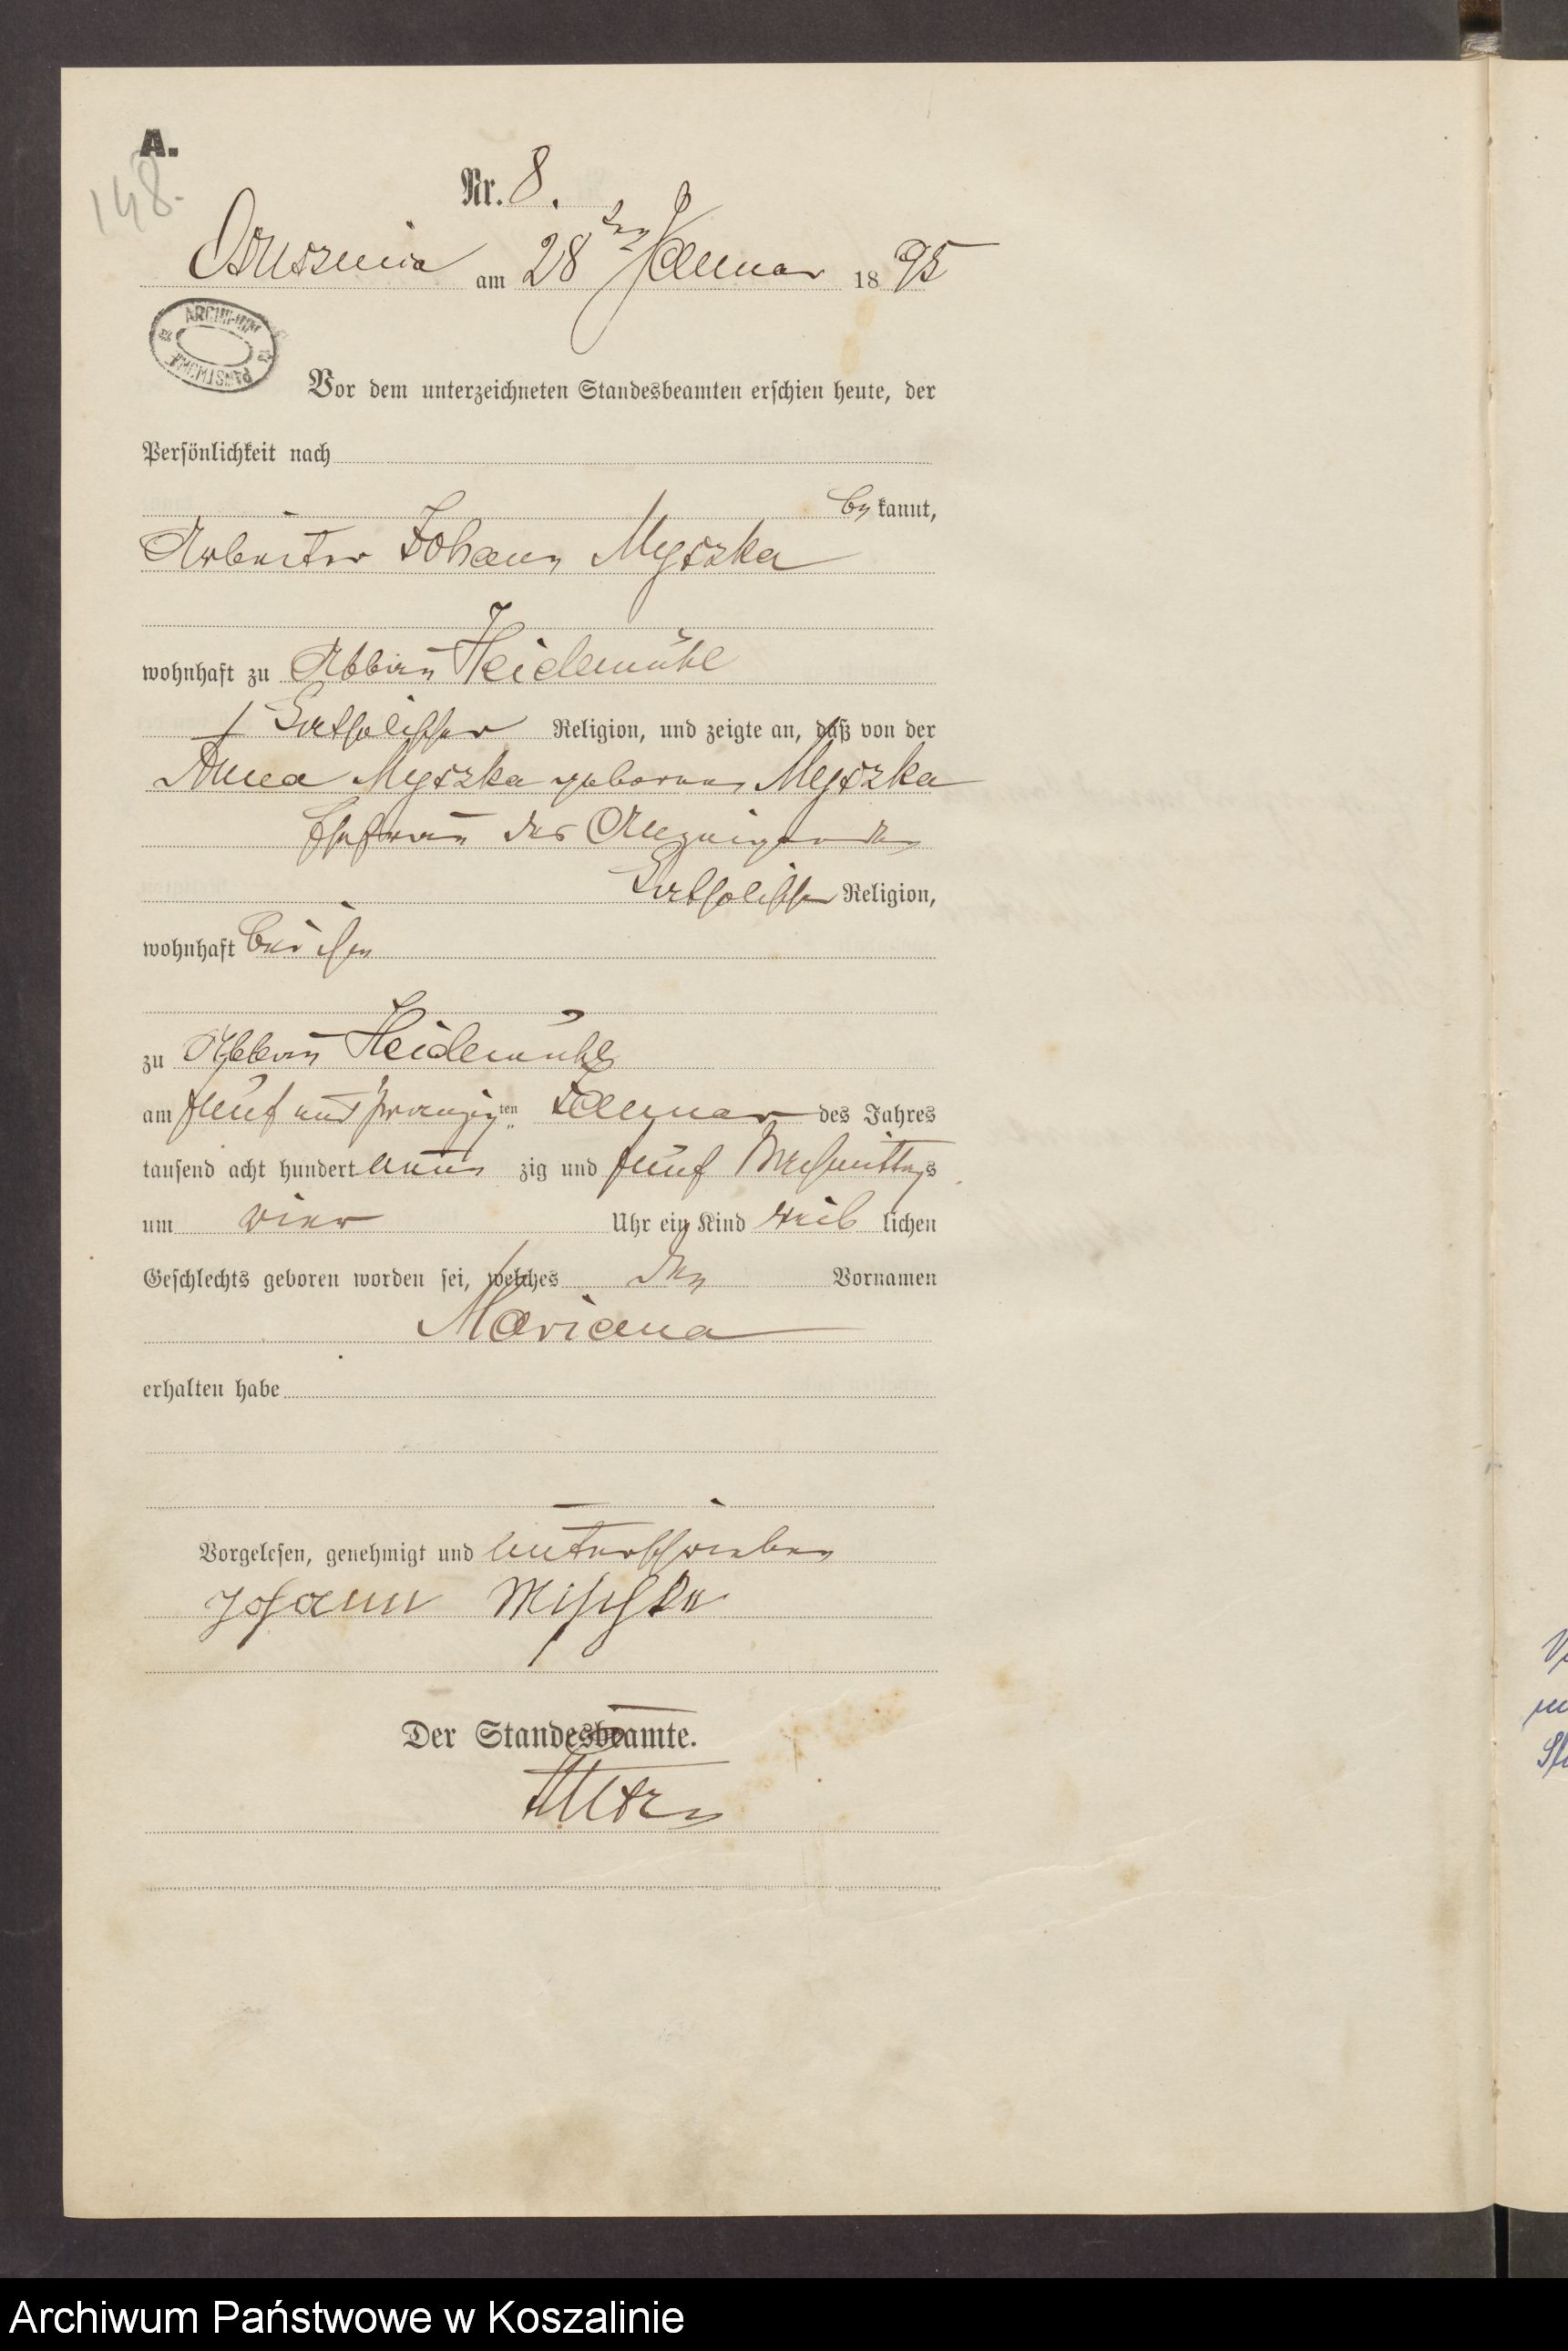 A.
148.
Nr. 8.
Ossusznica am 28ten Januar 1895
ARCHIWUM PAŃSTWOWE
Vor dem unterzeichneten Standesbeamten erschien heute, der
Persönlichkeit nach
bekannt,
Arbeiter Johann Myszka
wohnhaft zu Abbau Heidemühl
katholischer Religion, und zeigte an, daß von der
Anna Myszka geborenen Myszka
Ehefrau des Anzeigenden
katholischer Religion,
wohnhaft bei ihm
zu Abbau Heidemühl
am fünf und zwanzigten Januar des Jahres
tausend acht hundert neun zig und fünf Nachmittags
um vier Uhr ein Kind weib lichen
Geschlechts geboren worden sei, welches den Vornamen
Mariana
erhalten habe
Vorgelesen, genehmigt und unterschrieben
Johann Mischke
Der Standesbeamte.
Archiwum Państwowe w Koszalinie